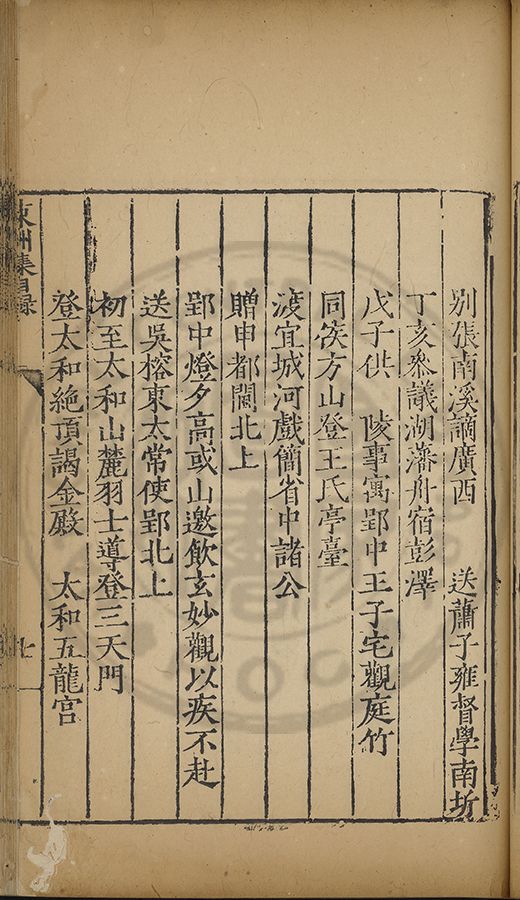 別張南溪謫廣西　送蕭子雍督學南圻
丁亥叅議湖藩舟宿彭澤
戊子供　陵事寓郢中王子宅觀庭竹
同筬方山登王氏亭臺
渡宜城河戲簡省中諸公
贈申都閫北上
郢中燈夕高或山邀飲玄妙觀以疾不赴
送吳榕東太常使郢北上
初至太和山麓羽士導登三天門
登太和絶頂謁金殿　太和五龍宫
洲集目録